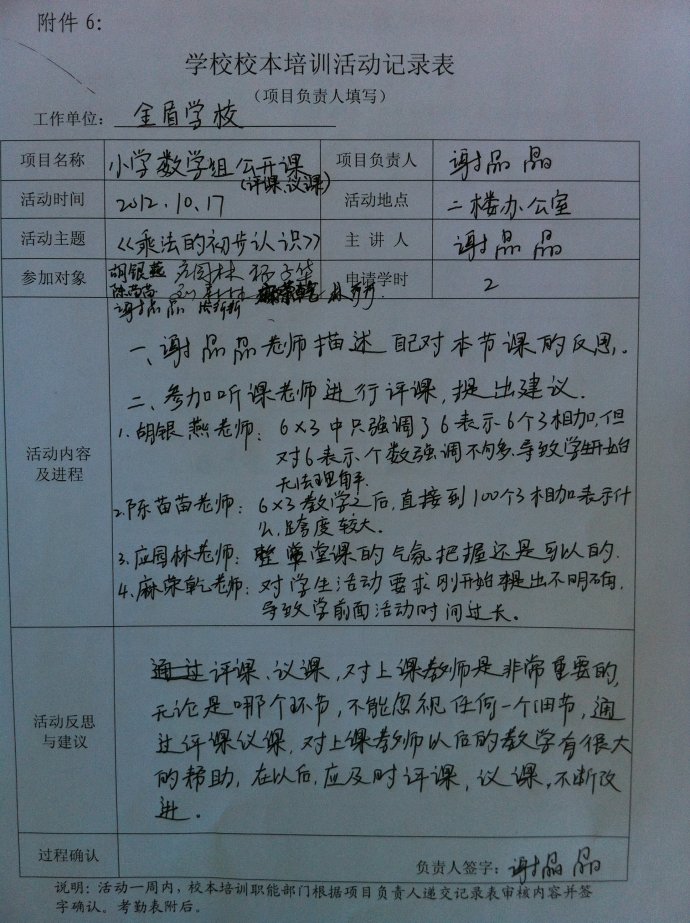 附件 6：
学校校本培训活动记录表
（项目负责人填写）
工作单位： 金眉学校
项目名称 小学数学组公开课 项目负责人 谢晶晶
(评课、议课)
活动时间 2012.10.17 活动地点 二楼办公室
活动主题 《乘法的初步认识》 主 讲 人 谢晶晶
参加对象 胡银燕 应园林 申请学时 2
陈苗苗
谢晶晶
活动内容
及进程
一、谢晶晶老师描述自己对本节课的反思.
二、参加听课老师进行评课,提出建议.
1.胡银燕老师: 6×3中只强调了6表示6个3相加,但
对6表示个数强调不够多.导致学生开始
无法理解.
2.陈苗苗老师: 6×3教学之后,直接到100个3相加表示什
么,跨度较大.
3.应园林老师: 整堂课的气氛把握还是可以的.
4.麻荣乾老师: 对学生活动要求刚开始提出不明确,
导致学前面活动时间过长.
活动反思
与建议
通过评课、议课,对上课教师是非常重要的,
无论是哪个环节,不能忽视任何一个细节,通
过评课议课,对上课教师以后的教学有很大
的帮助,在以后,应及时评课,议课,不断改
进。
过程确认 负责人签字：谢晶晶
说明：活动一周内，校本培训职能部门根据项目负责人递交记录表审核内容并签
字确认。考勤表附后。